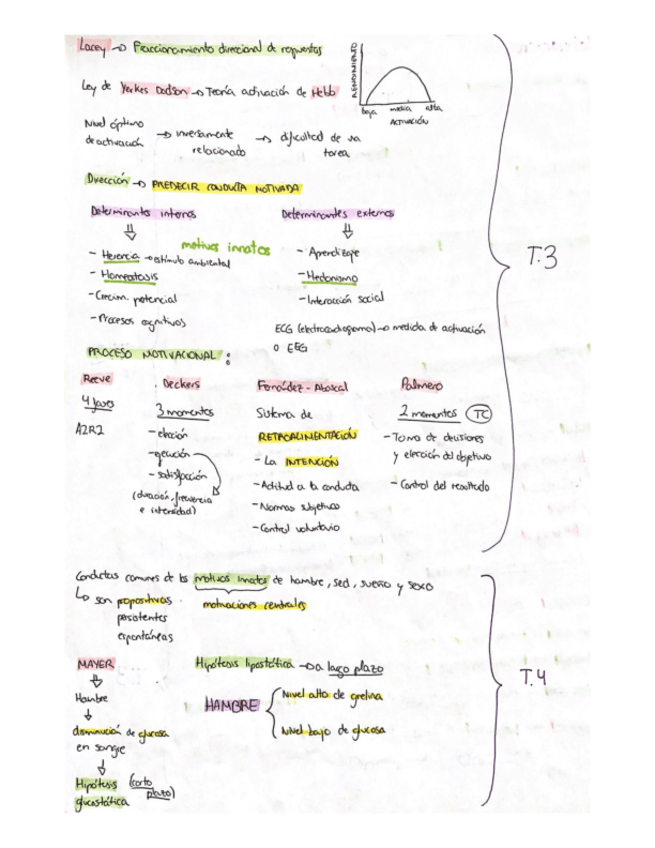 Lacey → Fraccionamiento direccional de respuestas
RENDIMIENTO
baja media alta
ACTIVACIÓN
Ley de Yerkes Dodson → Teoría activación de Hebb
Nivel óptimo de activación → inversamente relacionado → dificultad de una tarea
Dirección → PREDECIR CONDUCTA MOTIVADA
Determinantes internos
Determinantes externos
motivos innatos
- Herencia → estímulo ambiental
- Homeostasis
- Crecim. potencial
- Procesos cognitivos
- Aprendizaje
- Hedonismo
- Interacción social
ECG (electrocardiograma) → medida de activación
o EEG
T.3
PROCESO MOTIVACIONAL:
Reeve
4 fases
A2R2
Deckers
3 momentos
- elección
- ejecución
- satisfacción
(duración, frecuencia
e intensidad)
Fernández-Abascal
Sistema de
RETROALIMENTACIÓN
- La INTENCIÓN
- Actitud a la conducta
- Normas subjetivas
- Control voluntario
Palmero
2 momentos TC
- Toma de decisiones
y elección del objetivo
- Control del resultado
Conductas comunes de los motivos innatos de hambre, sed, sueño y sexo
↳ son propositivas
persistentes
espontáneas
motivaciones centrales
T.4
MAYER
Hambre
disminución de glucosa
en sangre
Hipótesis (corto
glucostática plazo)
Hipótesis lipostática → a largo plazo
HAMBRE
Nivel alto de grelina
Nivel bajo de glucosa